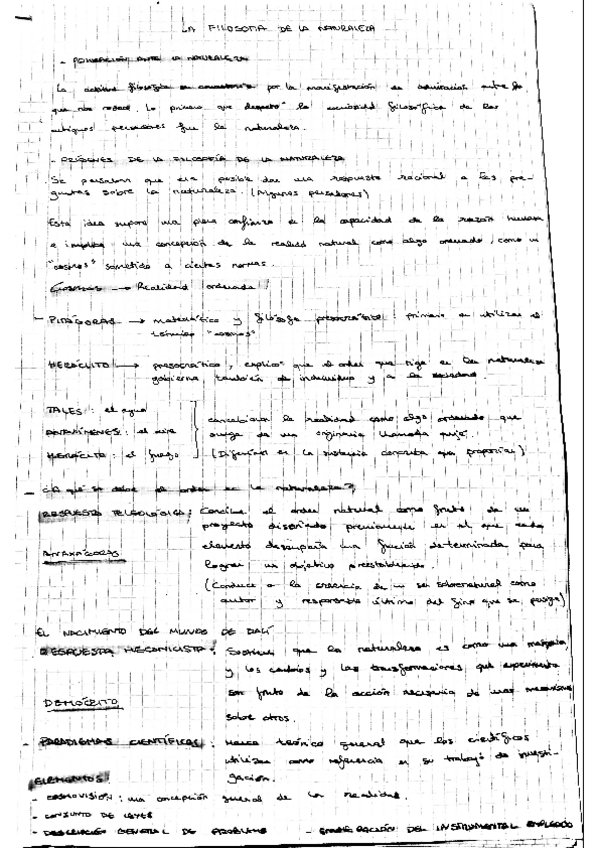 LA FILOSOFIA DE LA NATURALEZA
- FORMACIÓN ANTE LA NATURALEZA
La actitud filosófica se caracteriza por la manifestación de admiración ante lo
que nos rodea. Lo primero que despertó la curiosidad filosófica de los
antiguos pensadores fue la naturaleza.
- ORÍGENES DE LA FILOSOFÍA DE LA NATURALEZA
Se pensaron que era posible dar una respuesta racional a las pre-
guntas sobre la naturaleza. (Algunos pensadores)
Esta idea supone una plena confianza en la capacidad de la razón humana
e implica una concepción de la realidad natural como algo ordenado, como un
"cosmos" sometido a ciertas normas.
Cosmos → Realidad ordenada
- PITÁGORAS → matemático y filósofo presocrático : primero en utilizar el
término "cosmos"
HERÁCLITO → presocrático, explicó que el orden que rige en la naturaleza
gobierna también al individuo y a la sociedad
TALES : el agua
ANAXÍMENES : el aire
HERÁCLITO : el fuego
concebían la realidad como algo ordenado que
surge de un originario llamado arjé.
(Diferían en la sustancia concreta que proponían)
- ¿A qué se debe el orden en la naturaleza?
RESPUESTA TELEOLÓGICA : Concibe el orden natural como fruto de un
proyecto diseñado previamente en el que cada
elemento desempeña una función determinada para
lograr un objetivo preestablecido.
ANAXÁGORAS
(Conduce a la creencia de un ser sobrenatural como
autor y responsable último del fin que se persigue)
EL NACIMIENTO DEL MUNDO DE DALÍ
RESPUESTA MECANICISTA : Sostiene que la naturaleza es como una máquina,
y los cambios y las transformaciones que experimenta
son fruto de la acción necesaria de unos
sobre otros.
DEMÓCRITO
- PARADIGMAS CIENTÍFICOS : Marco teórico general que los científicos
utilizan como referencia en su trabajo de investi-
gación.
ELEMENTOS
- COSMOVISIÓN : una concepción general de la realidad.
- CONJUNTO DE LEYES
- DESCRIPCIÓN GENERAL DE PROBLEMAS - ENUMERACIÓN DEL INSTRUMENTAL EMPLEADO